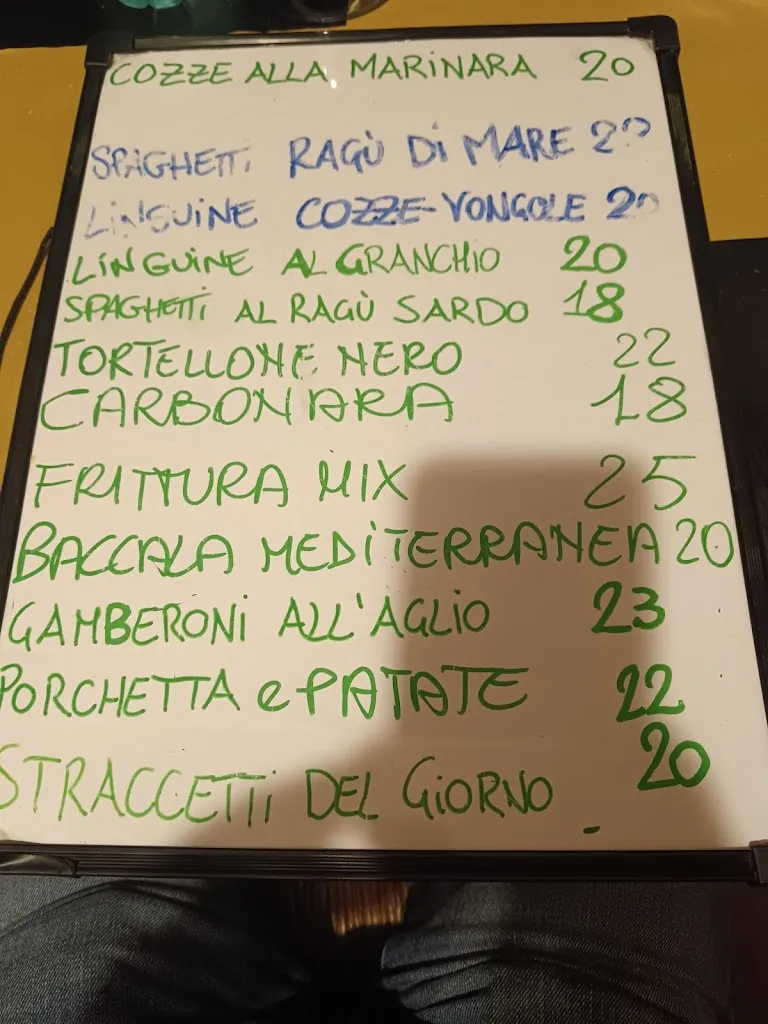 COZZE ALLA MARINARA 20
SPAGHETTI RAGÙ DI MARE 20
LINGUINE COZZE-VONGOLE 20
LINGUINE AL GRANCHIO 20
SPAGHETTI AL RAGÙ SARDO 18
TORTELLONE NERO 22
CARBONARA 18
FRITTURA MIX 25
BACCALA MEDITERRANEA 20
GAMBERONI ALL'AGLIO 23
PORCHETTA e PATATE 22
STRACCETTI DEL GIORNO 20